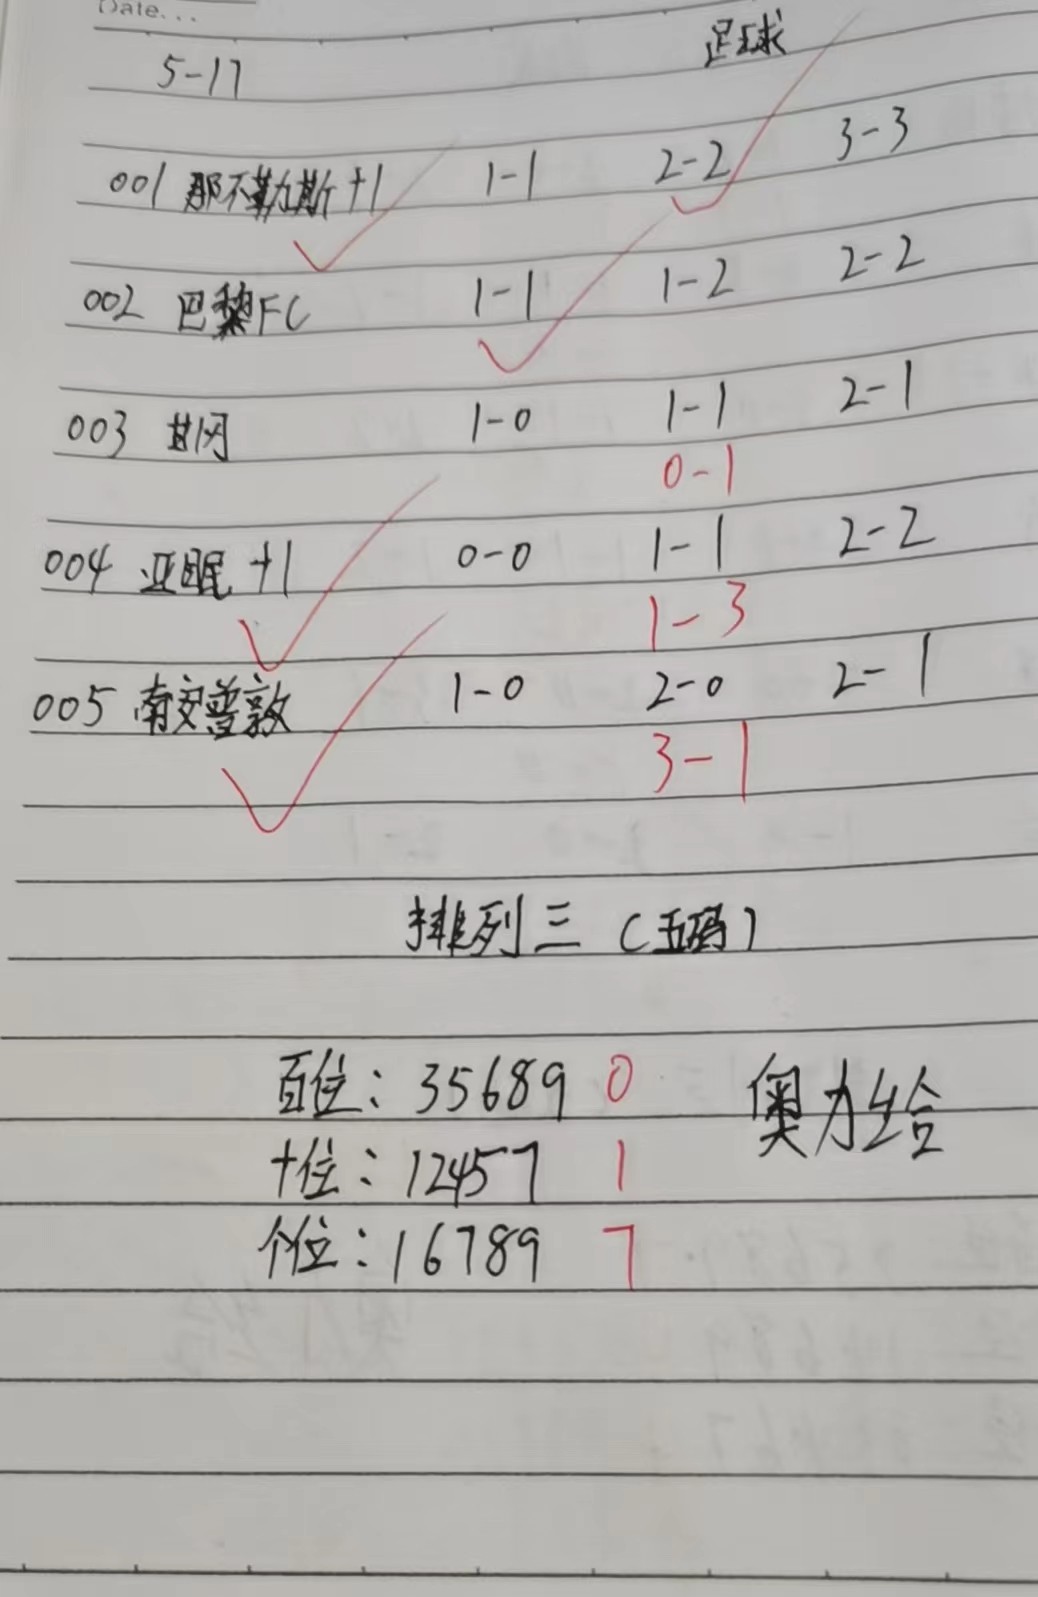 Date...
5-17 足球
001 那不勒斯+1 1-1 2-2 3-3
002 巴黎FC 1-1 1-2 2-2
003 甘冈 1-0 1-1 2-1
0-1
004 亚眠 +1 0-0 1-1 2-2
1-3
005 南安普敦 1-0 2-0 2-1
3-1
排列三（五码）
百位：35689 0 奥力给
十位：12457 1
个位：16789 7